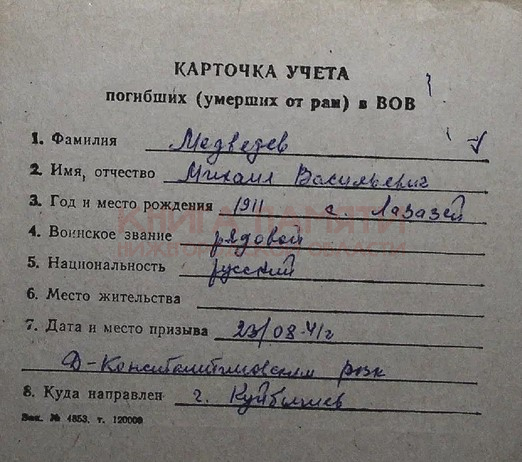 КАРТОЧКА УЧЕТА
погибших (умерших от ран) в ВОВ
1. Фамилия Медведев
2. Имя, отчество Михаил Васильевич
3. Год и место рождения 1911 с. Лазазей
КНИГА ПАМЯТИ
4. Воинское звание рядовой
НИЖЕГОРОДСКОЙ ОБЛАСТИ
5. Национальность русский
6. Место жительства
7. Дата и место призыва 23/08-41г
Д-Константиновским рвк
8. Куда направлен г. Куйбышев
Зак. № 4853. т. 120000